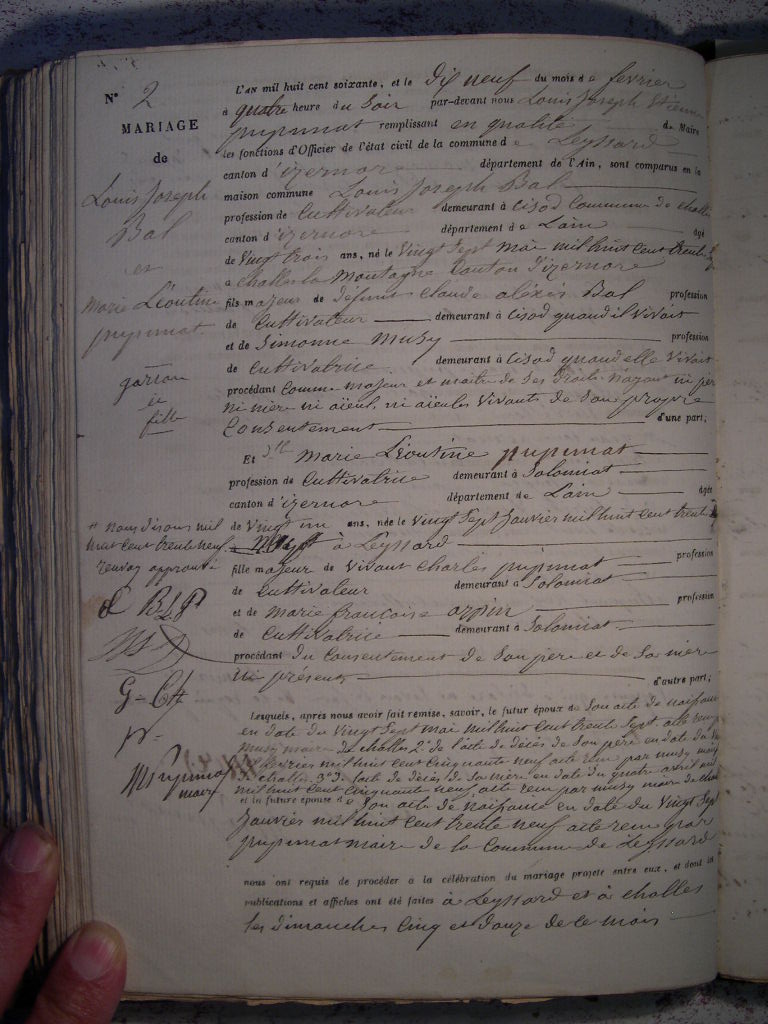 N° 2
MARIAGE
de
Louis Joseph
Bal
et
Marie Léoutine
pupunat
garson
et
fille
# nous disons mil
huit cent trente neuf
renvoy approuvé
B L J P
G - Ch
pupunat
maire
L'AN mil huit cent soixante, et le Dix neuf du mois de fevrier
à quatre heure du Soir par-devant nous Louis Joseph Etienne
pupunat remplissant en qualité de Maire
les fonctions d'Officier de l'état civil de la commune de Leyssard
canton d'izernore département de l'Ain, sont comparus en la
maison commune Louis Joseph Bal
profession de Cultivateur demeurant à Cisod Commune de challes
canton d'izernore département de Lain âgé
de Vingt trois ans, né le Vingt Sept mai mil huit cent trente
a challes la Montagne Canton d'izernore
fils majeur de défunt claude aléxis Bal profession
de Cultivateur demeurant à Cisod quand il Vivait
et de Simonne Musy profession
de Cultivatrice demeurant à Cisod quand elle Vivait
procédant Comme majeur et maitre de Ses droits N'ayant ni père
ni mère ni aïeul, ni aïeules Vivants de Son propre
Consentement d'une part;
Et Dlle Marie Léoutine pupunat
profession de Cultivatrice demeurant à Solomiat
canton d'izernore département de Lain âgée
de Vingt un ans, née le Vingt Sept Janvier mil huit cent trente
à Leyssard
fille majeur de Vivant Charles pupunat profession
de Cultivateur demeurant à Solomiat
et de Marie françoise arpin profession
de Cultivatrice demeurant à Solomiat
procédant du Consentement de Son père et de Sa mère
ici présents d'autre part;
Lesquels, après nous avoir fait remise, savoir, le futur époux de Son acte de naissance
en date du Vingt Sept mai mil huit cent trente Sept acte remi par
musy maire de challes 2° de l'acte de décès de Son père en date du
fevrier mil huit cent Cinquante neuf acte remi par musy maire
challes 3° de l'acte de décès de Sa mère en date du quatre avril
mil huit Cent Cinquante neuf, acte remi par musy maire de challes
et la future épouse de Son acte de naissance en date du Vingt Sept
Janvier mil huit cent trente neuf acte remi par
pupunat maire de la Commune de Leyssard
nous ont requis de procéder à la célébration du mariage projeté entre eux, et dont les
publications et affiches ont été faites à Leyssard et à challes
les dimanches Cinq et douze de ce mois